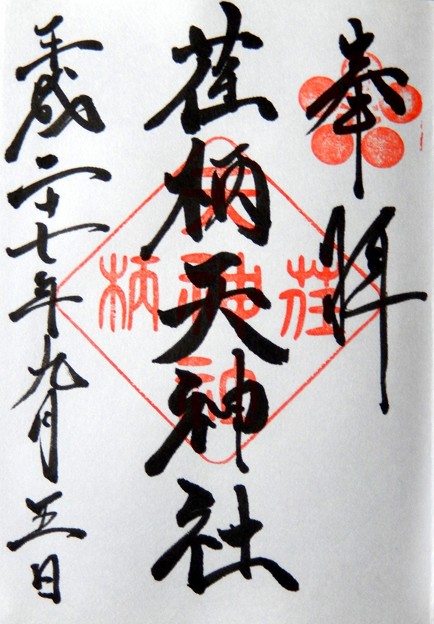 奉拝
荏柄天神社
平成二十七年九月五日
荏
柄